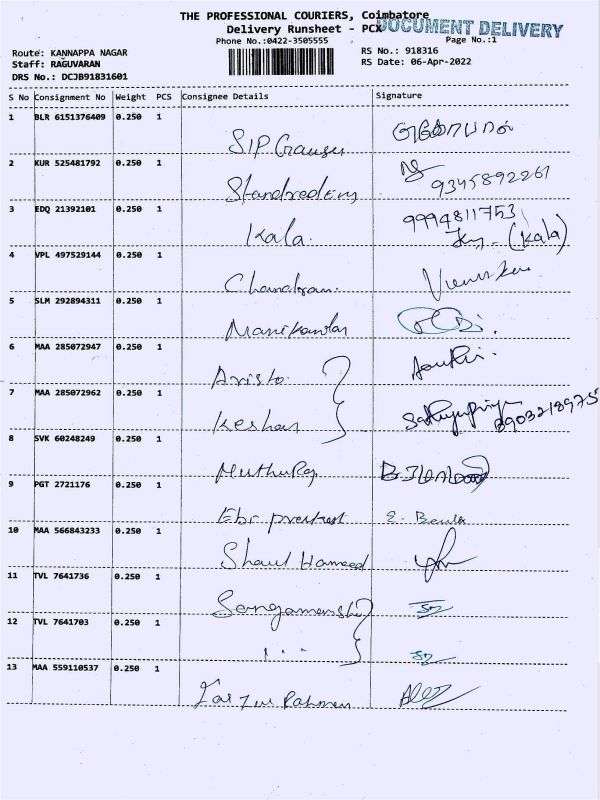 THE PROFESSIONAL COURIERS, Coimbatore
Delivery Runsheet - PCX
DOCUMENT DELIVERY
Phone No.:0422-3505555
Page No.:1
Route: KANNAPPA NAGAR
RS No.: 918316
Staff: RAGUVARAN
RS Date: 06-Apr-2022
DRS No.: DCJB91831601
S No Consignment No Weight PCS Consignee Details Signature
1 BLR 6151376409 0.250 1
SIP
2 KUR 525481792 0.250 1
9345892261
3 EDQ 21392101 0.250 1
Kala. 9994811753
(Kala)
4 VPL 497529144 0.250 1
Chandran.
5 SLM 292894311 0.250 1
Manikandan
6 MAA 285072947 0.250 1
Aristo.
7 MAA 285072962 0.250 1
Keshan Sathyapriya
8903218975
8 SVK 60248249 0.250 1
Muthuraj
9 PGT 2721176 0.250 1
Ebi
10 MAA 566843233 0.250 1
Shaul Hameed
11 TVL 7641736 0.250 1
12 TVL 7641703 0.250 1
13 MAA 559110537 0.250 1
Rahman